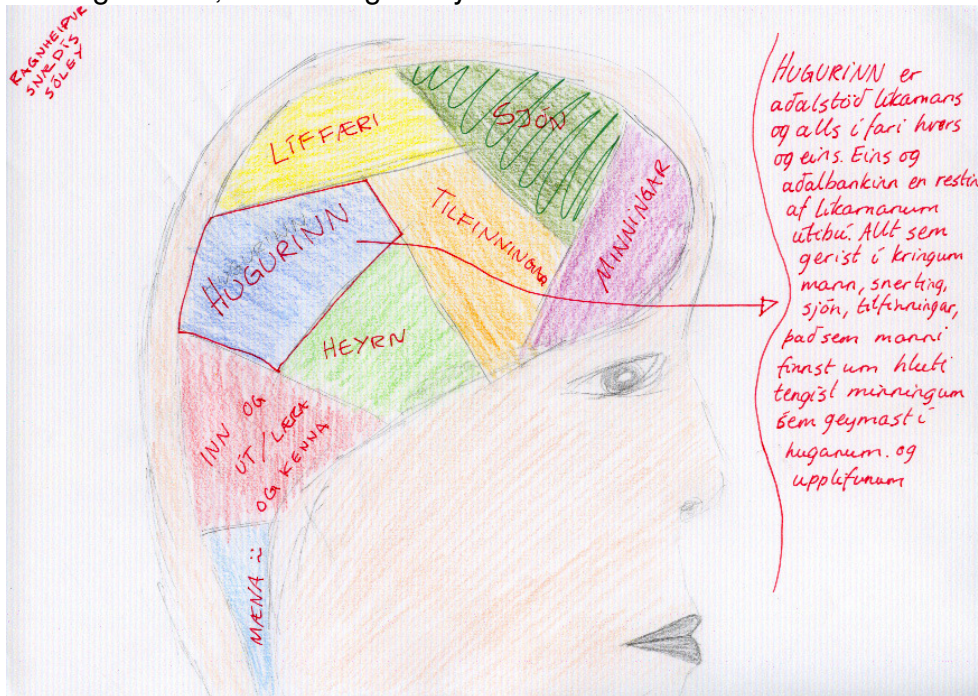 RAGNHEIÐUR
SNÆDÍS
SÓLEY
LÍFFÆRI
SJÓN
MINNINGAR
TILFINNINGAR
HUGURINN
HEYRN
INN OG
ÚT/LÆRA
OG KENNA
MÆNA
HUGURINN er
aðalstöð líkamans
og alls í fari hvers
og eins. Eins og
aðalbankinn en restin
af líkamanum
útibú. Allt sem
gerist í kringum
mann, snerting,
sjón, tilfinningar,
það sem manni
finnst um hluti
tengist minningum
sem geymast í
huganum. og
upplifunum